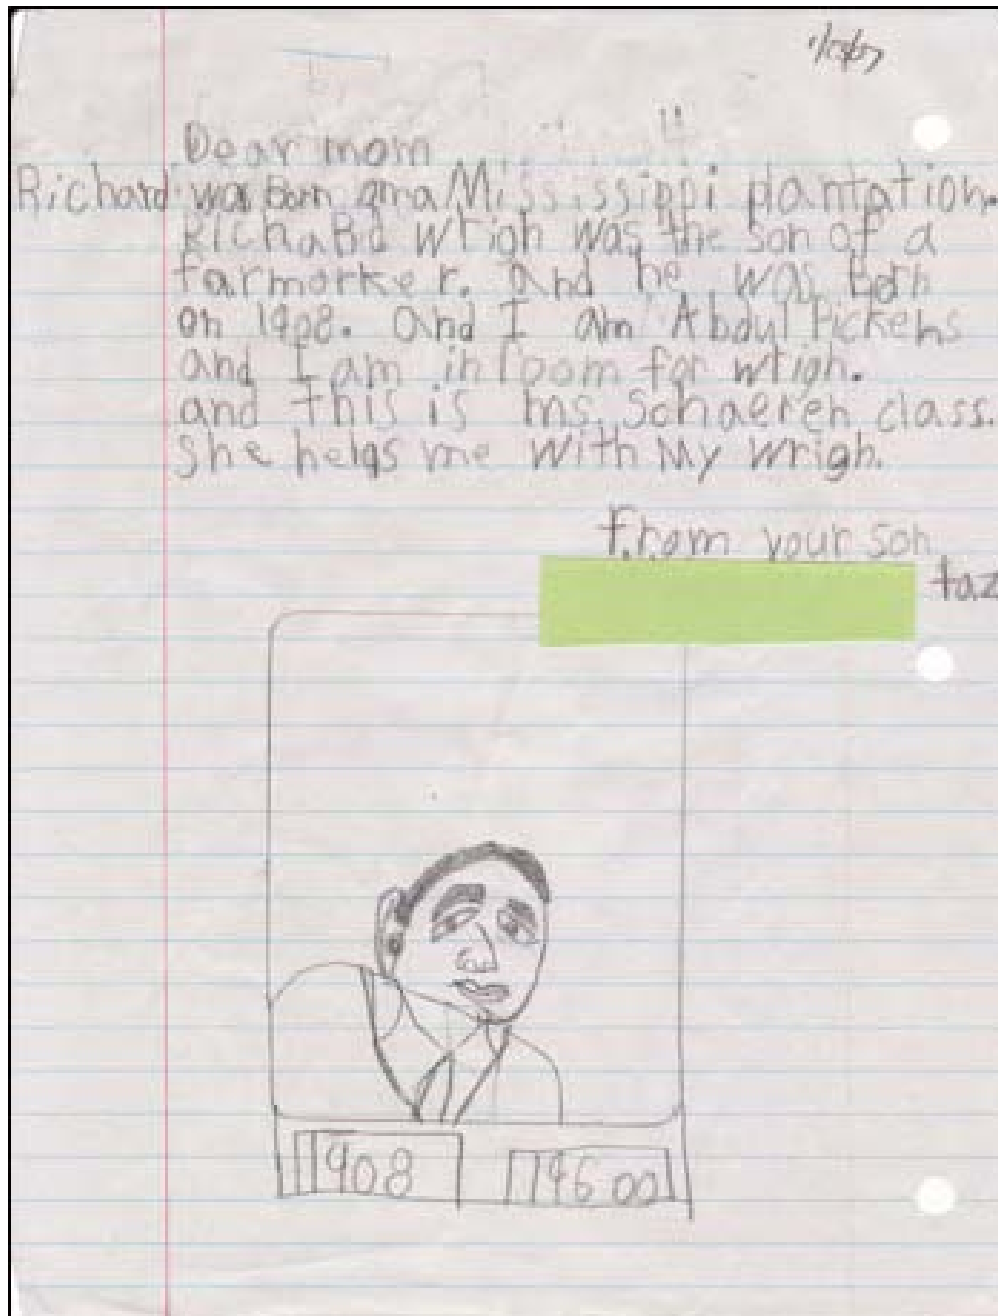 Dear mom
Richard was Born on a Mississippi plantation.
RichaBd Wrigh was the son of a
farmorker. and he was Born
on 1908. and I am Abdul Pickens
and I am in room for wrigh.
and this is ms. Schaeren class.
She helps me with My wrigh.
from your son
taz
1908
196000